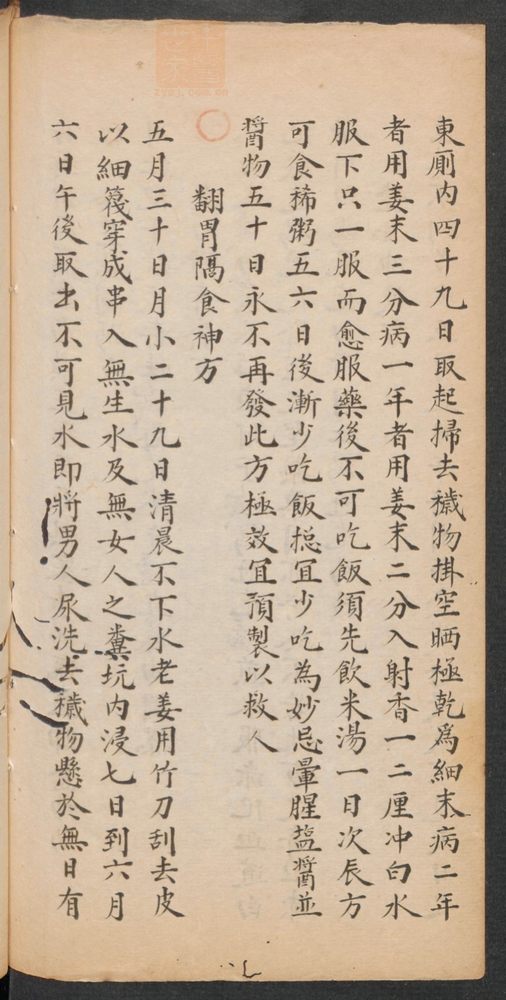 東厠内四十九日取起掃去穢物掛空晒極乾爲細末病二年
者用姜末三分病一年者用姜末二分入射香一二厘冲白水
服下只一服而愈服藥後不可吃飯須先飲米湯一日次辰方
可食稀粥五六日後漸少吃飯揔冝少吃為妙忌暈腥盐醬並
醬物五十日永不再發此方極效冝預製以救人
翻胃隔食神方
五月三十日月小二十九日清晨不下水老姜用竹刀刮去皮
以細篾穿成串入無生水及無女人之糞坑内浸七日到六月
六日午後取出不可見水即將男人尿洗去穢物懸於無日有